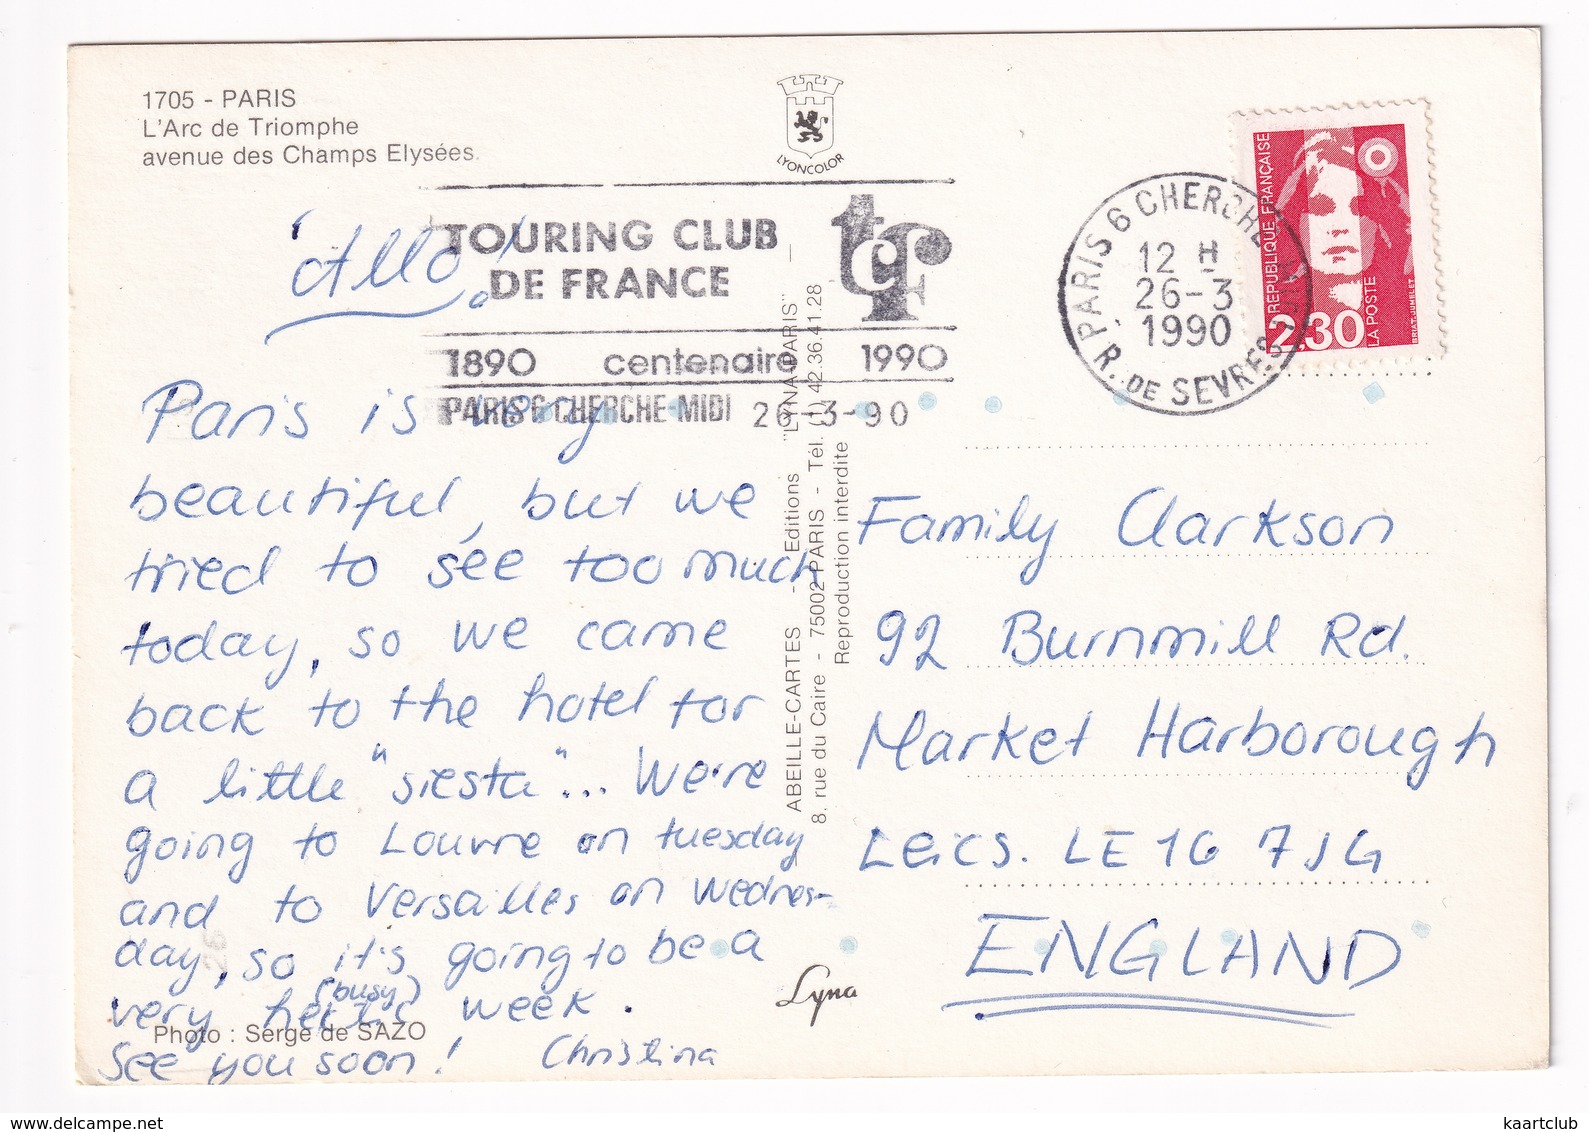 1705 - PARIS
L'Arc de Triomphe
avenue des Champs Elysées.
LYONCOLOR
TOURING CLUB
DE FRANCE
tcF
1890 centenaire 1990
PARIS 6 CHERCHE-MIDI 26-3-90
PARIS 6 CHERCHE MIDI
12 H
26-3
1990
R. DE SEVRES
REPUBLIQUE FRANÇAISE
2,30
LA POSTE
BRIAT-JUMELET
'Allo!
Paris is very
beautiful, but we
tried to see too much
today, so we came
back to the hotel for
a little "siesta"... We're
going to Louvre on tuesday
and to Versailles on Wednes-
day, so it's going to be a
(busy)
very hectic week.
See you soon! Christina
Photo : Serge de SAZO
ABEILLE-CARTES - Editions "LYNA-PARIS"
8, rue du Caire - 75002 PARIS - Tél. (1) 42.36.41.28
Reproduction interdite
Lyna
Family Clarkson
92 Burnmill Rd.
Market Harborough
Leics. LE16 7JG
ENGLAND
kaartclub